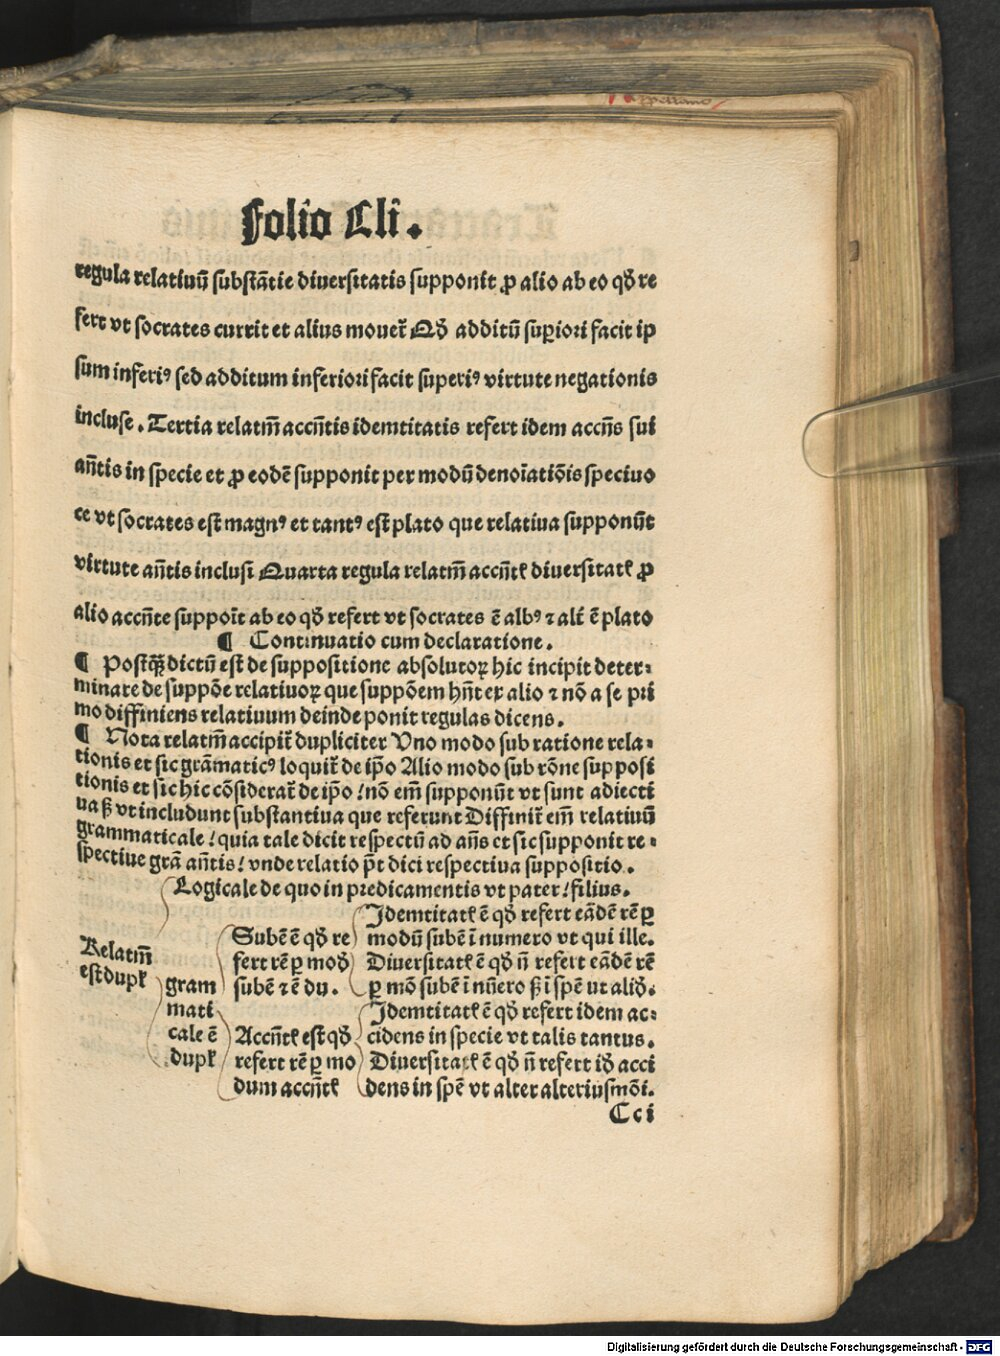 Folio Cli.
regula relatiuū substātie diuersitatis supponit ꝓ alio ab eo qđ re
fert vt socrates currit et alius mouet̄ Qđ additū suꝑiori facit ip
sum inferiꝰ sed additum inferiori facit superiꝰ virtute negationis
incluse. Tertia relatm̄ accn̄tis idemtitatis refert idem accn̄s sui
an̄tis in specie et ꝓ eodē supponit per modū denoīatiōis speciuo
ce vt socrates est magnꝰ et tantꝰ est plato que relatiua supponūt
virtute an̄tis inclusi Quarta regula relatm̄ accn̄tꝭ diuersitatꝭ ꝓ
alio accn̄te suppoīt ab eo qđ refert vt socrates ē albꝰ ⁊ alt̄ ē plato
¶ Continuatio cum declaratione.
¶ Postꝙ̄ dictū est de suppositione absolutoꝝ hic incipit deter⸗
minare de suppōe relatiuoꝝ que suppōem hn̄t ex alio ⁊ nō a se pri
mo diffiniens relatiuum deinde ponit regulas dicens.
¶ Nota relatm̄ accipit̄ dupliciter Uno modo sub ratione rela⸗
tionis et sic grāmaticꝰ loquit̄ de ip̄o Alio modo sub rōne supposi
tionis et sic hic cōsiderat̄ de ip̄o / nō em̄ supponūt vt sunt adiecti
ua ß vt includunt substantiua que referunt Diffinit̄ em̄ relatiuū
grammaticale / quia tale dicit respectū ad an̄s et sic supponit re⸗
spectiue grā an̄tis / vnde relatio p̄t dici respectiua suppositio.
Logicale de quo in predicamentis vt pater / filius.
Relatm̄
est dupꝉ
gram
mati
cale ē
dupꝉ
Subē ē qđ re
fert rē ꝑ mođ
subē ⁊ ē du.
Idemtitatꝭ ē qđ refert eādē rē ꝑ
modū subē ī numero vt qui ille.
Diuersitatꝭ ē qđ n̄ refert eādē rē
ꝑ mō subē ī nūero ß ī spē ut aliđ.
Accn̄tꝭ est qđ
refert rē ꝑ mo
dum accn̄tꝭ
Idemtitatꝭ ē qđ refert idem ac⸗
cidens in specie vt talis tantus.
Diuersitatꝭ ē qđ n̄ refert iđ acci
dens in spē vt alter alteriusmōi.
Cci
Digitalisierung gefördert durch die Deutsche Forschungsgemeinschaft - DFG